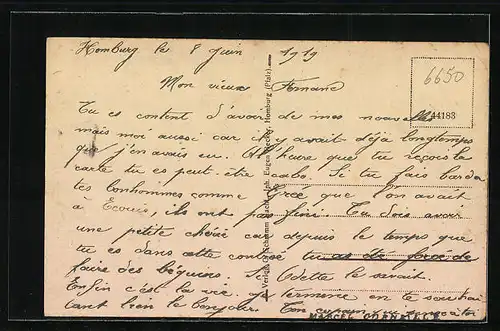 Hombourg le 8 Juin 1919
6650
44183
Mon vieux Armand
Tu es content d'avoir de mes nouvelles
mais moi aussi car il y avait déja longtemps
que j'en avais eu. A l'heure que tu reçois la
carte tu es peut-être cabo. Si tu fais barder
les bonhommes comme que l'on avait
à Ecouis, ils ont pas fini. Tu dois avoir
une petite chérie car depuis le temps que
tu es dans cette contrée tu as dû forcé de
faire des béguins. Si Odette le savait.
Enfin c'est la vie. je termine en te souhai
tant bien le bonjour. Ton copain
Verlag Eugen Homburg (Pfalz)
MARCEL